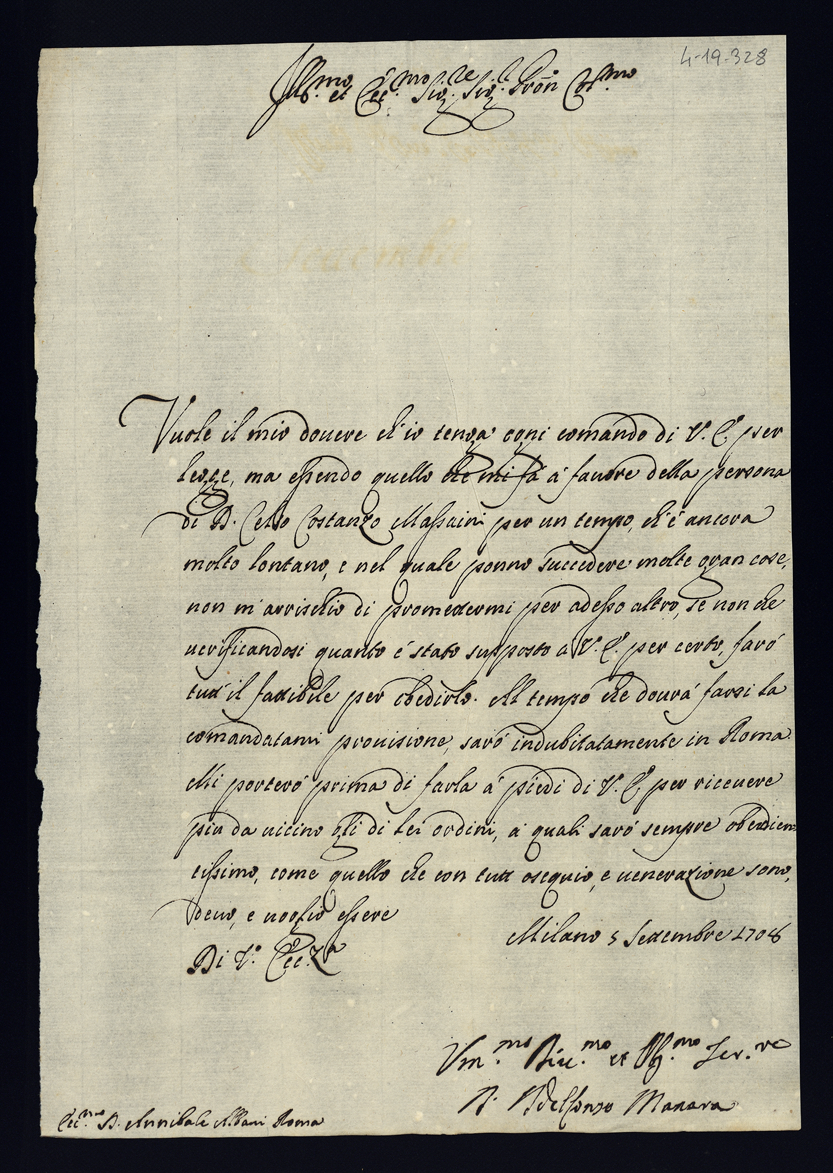 4-19-328
Ill.mo et Ecc.mo Sig.re Sig.r Pron Col.mo
Vuole il mio douere ch'io tenga ogni comando di V. E. per
legge, ma essendo quello che mi fà à fauore della persona
di D. Celso Costanzo Massaini per un tempo, ch'è ancora
molto lontano, e nel quale ponno succedere molte gran cose,
non m'arrischio di promettermi per adesso altro, se non che
uerificandosi quanto è stato supposto a V. E. per certo, farò
tutt'il fattibile per obedirlo. Al tempo che dourà farsi la
comandatami prouisione, sarò indubitatamente in Roma.
Mi porterò prima di farla à piedi di V. E. per riceuere
piu da uicino gli di lei ordini, a quali sarò sempre obedien
tissimo, come quello che con tutt osequio, e uenerazione sono,
deuo, e uoglio essere
Di V. Ecc.za
Milano 5 Settembre 1708
Um.mo Diu.mo et Obg.mo Ser.re
D. Ildelfonso Manara
Ecc.mo D. Annibale Albani Roma